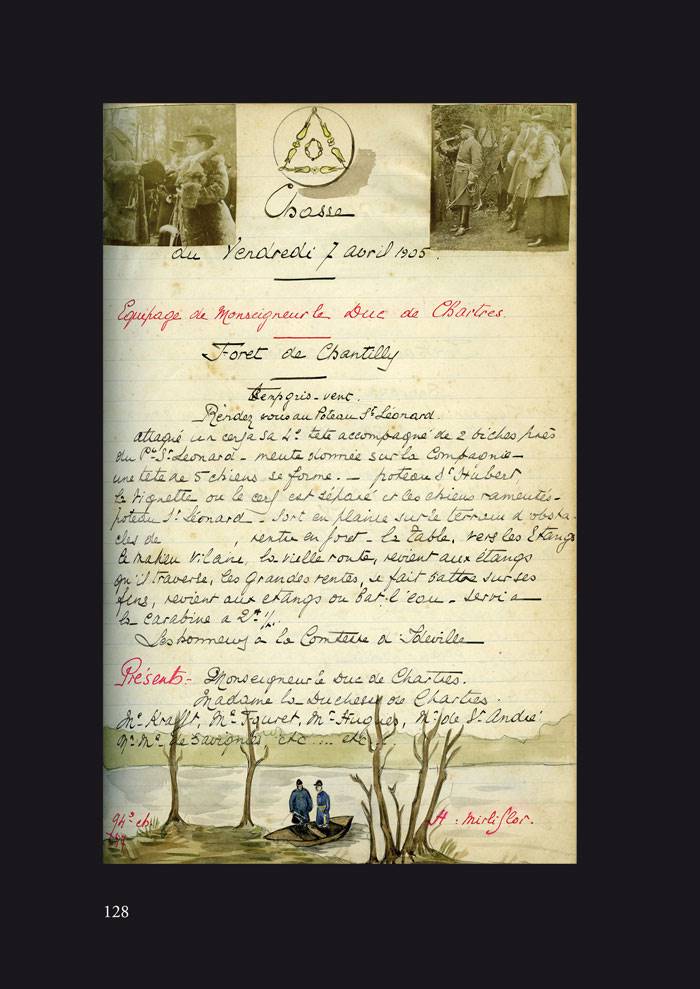 Chasse
du Vendredi 7 avril 1905.
Equipage de Monseigneur le Duc de Chartres.
Foret de Chantilly
Temps gris - vent.
Rendez vous au Poteau St Léonard.
attaqué un cerf a sa 4e tête accompagné de 2 biches près
du Pau St Léonard - meute donnée sur la Compagnie -
une tête de 5 chiens se forme. - poteau St Hubert
la Vignette ou le cerf est séparé et les chiens rameutés -
poteau St Léonard - sort en plaine sur le terrain d'obsta-
cles de , rentre en foret - la Table, vers les Etangs
Vilaine, la vieille route, revient aux étangs
qu'il traverse, les grandes ventes, se fait battre sur ses
fins, revient aux etangs ou bat l'eau - servi a
la carabine a 2h 1/2.
Les honneurs à la Comtesse d'Ideville
Présents - Monseigneur le Duc de Chartres.
Madame la Duchesse de Chartres.
Mr Krafft, Mr Fouret, Mr Hugues, Mr de St André
Mr Me de Savignies etc... etc...
94e ch.
H. Mirliflor.
128